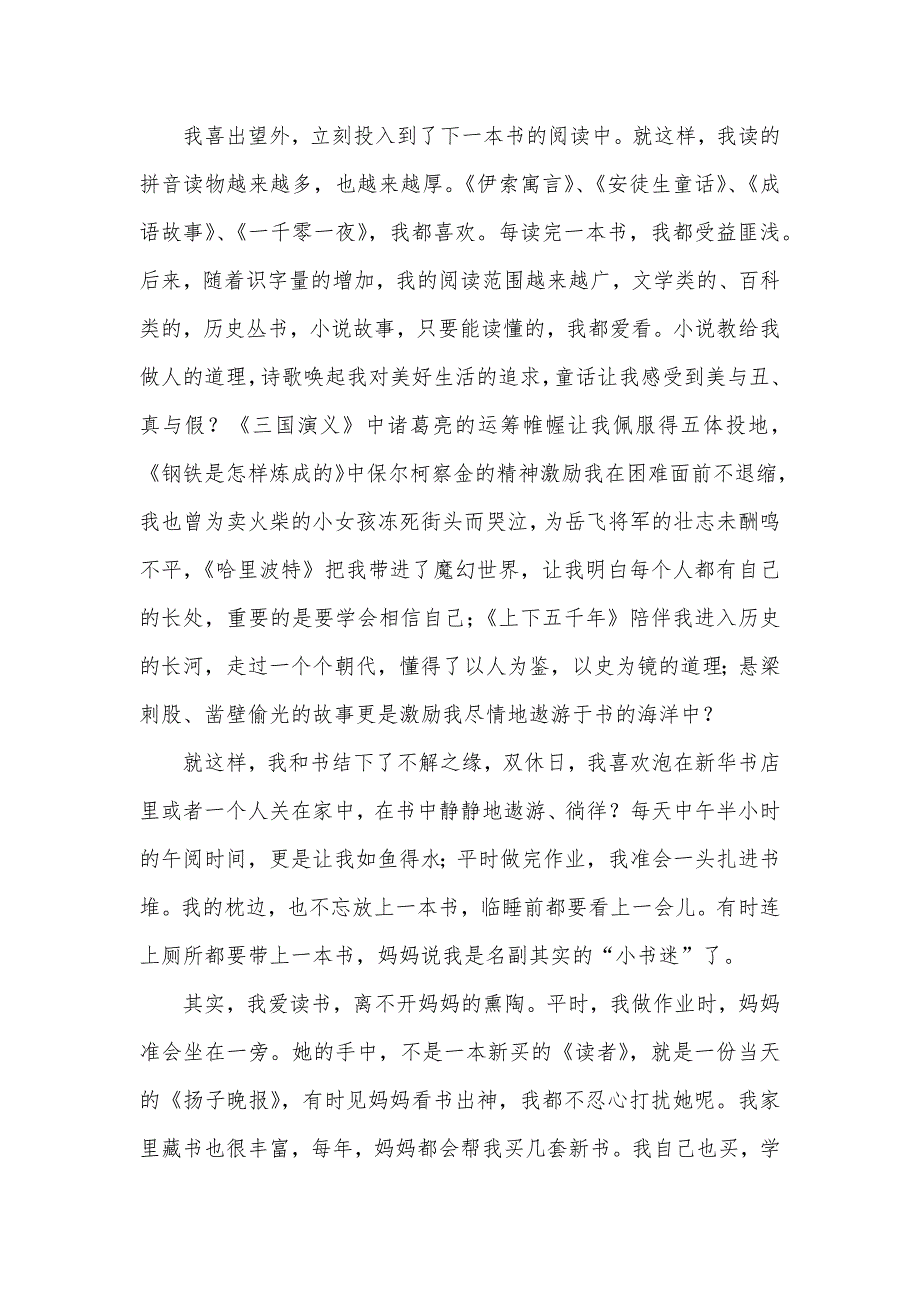 我喜出望外，立刻投入到了下一本书的阅读中。就这样，我读的
拼音读物越来越多，也越来越厚。《伊索寓言》、《安徒生童话》、《成
语故事》、《一千零一夜》，我都喜欢。每读完一本书，我都受益匪浅。
后来，随着识字量的增加，我的阅读范围越来越广，文学类的、百科
类的，历史丛书，小说故事，只要能读懂的，我都爱看。小说教给我
做人的道理，诗歌唤起我对美好生活的追求，童话让我感受到美与丑、
真与假？《三国演义》中诸葛亮的运筹帷幄让我佩服得五体投地，
《钢铁是怎样炼成的》中保尔柯察金的精神激励我在困难面前不退缩，
我也曾为卖火柴的小女孩冻死街头而哭泣，为岳飞将军的壮志未酬鸣
不平，《哈里波特》把我带进了魔幻世界，让我明白每个人都有自己
的长处，重要的是要学会相信自己；《上下五千年》陪伴我进入历史
的长河，走过一个个朝代，懂得了以人为鉴，以史为镜的道理；悬梁
刺股、凿壁偷光的故事更是激励我尽情地遨游于书的海洋中？
就这样，我和书结下了不解之缘，双休日，我喜欢泡在新华书店
里或者一个人关在家中，在书中静静地遨游、徜徉？每天中午半小时
的午阅时间，更是让我如鱼得水；平时做完作业，我准会一头扎进书
堆。我的枕边，也不忘放上一本书，临睡前都要看上一会儿。有时连
上厕所都要带上一本书，妈妈说我是名副其实的“小书迷”了。
其实，我爱读书，离不开妈妈的熏陶。平时，我做作业时，妈妈
准会坐在一旁。她的手中，不是一本新买的《读者》，就是一份当天
的《扬子晚报》，有时见妈妈看书出神，我都不忍心打扰她呢。我家
里藏书也很丰富，每年，妈妈都会帮我买几套新书。我自己也买，学